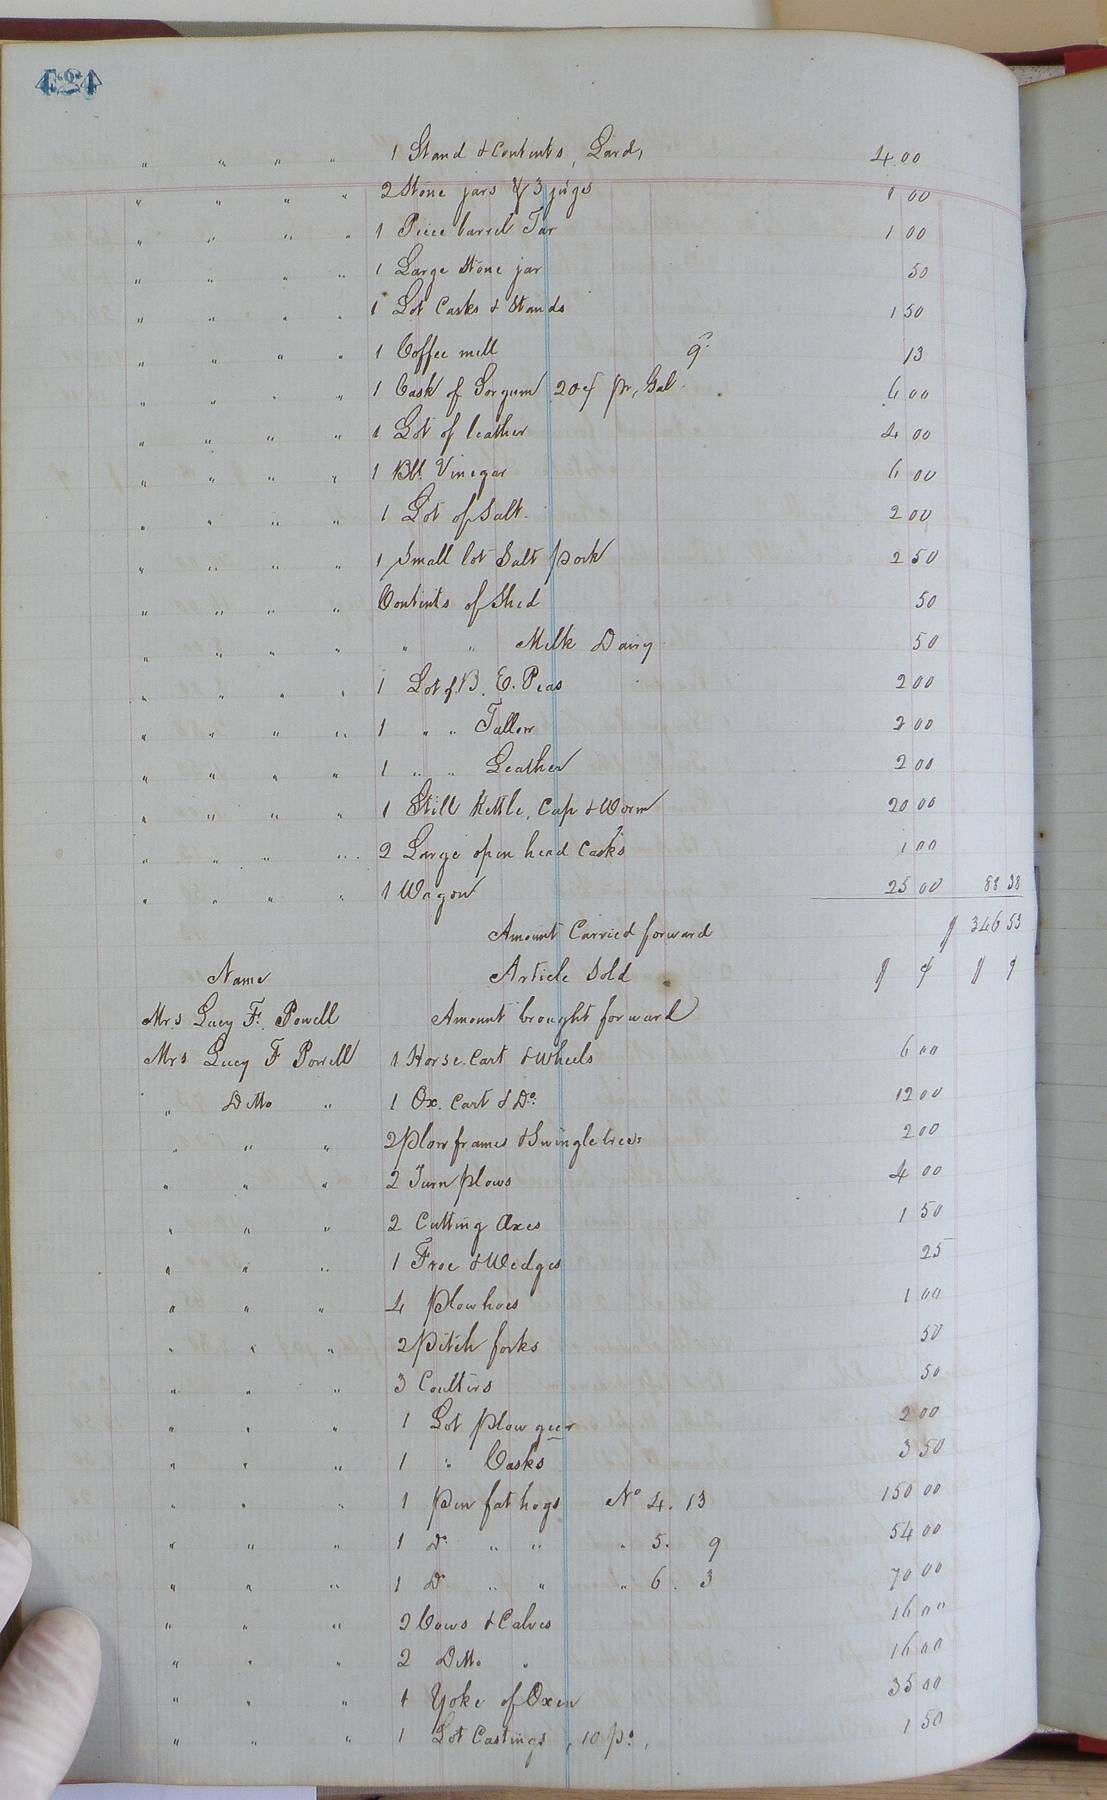 424
" " " " 1 Stand & Contents, Lard, 4 00
" " " " 2 Stone jars & 3 juges 1 00
" " " " 1 Piece barrel Tar 1 00
" " " " 1 Large Stone jar 50
" " " " 1 Lot Casks & Stands 1 50
" " " " 1 Coffee mill 13
" " " " 1 Cask of Sorgum 20¢ pr, Gal. 6 00
" " " " 1 Lot of leather 4 00
" " " " 1 Bbl. Vinegar 6 00
" " " " 1 Lot of Salt. 2 00
" " " " 1 Small lot Salt pork 2 50
" " " " Contents of Shed 50
" " " " " " Milk Dairy 50
" " " " 1 Lot of B. E. Peas 2 00
" " " " 1 " " Tallow 2 00
" " " " 1 " " Leather 2 00
" " " " 1 Still Kettle, Cap & Worm 20 00
" " " " 2 Large open head Casks 1 00
" " " " 1 Wagon 25 00 88 38
Amount Carried forward $ 346 53
Name Article Sold $ ¢ $ ¢
Mrs Lucy F. Powell Amount brought forward
Mrs Lucy F Powell 1 Horse. Cart & Wheels 6 00
" Ditto " 1 Ox. Cart & Do. 12 00
" " " 2 Plow frames & Swingletrees 2 00
" " " 2 Turn plows 4 00
" " " 2 Cutting Axes 1 50
" " " 1 Froe & Wedges 25
" " " 4 Plowhoes 1 00
" " " 2 Pitch forks 50
" " " 3 Coulters 50
" " " 1 Lot plow geer 2 00
" " " 1 " Casks 3 50
" " " 1 Pen fat hogs No 4. 13 150 00
" " " 1 Do " " " 5. 9 54 00
" " " 1 Do " " " 6. 3 70 00
" " " 2 Cows & Calves 16 00
" " " 2 Ditto " 16 00
" " " 1 Yoke of Oxen 35 00
" " " 1 Lot Castings, 10 ps, 1 50